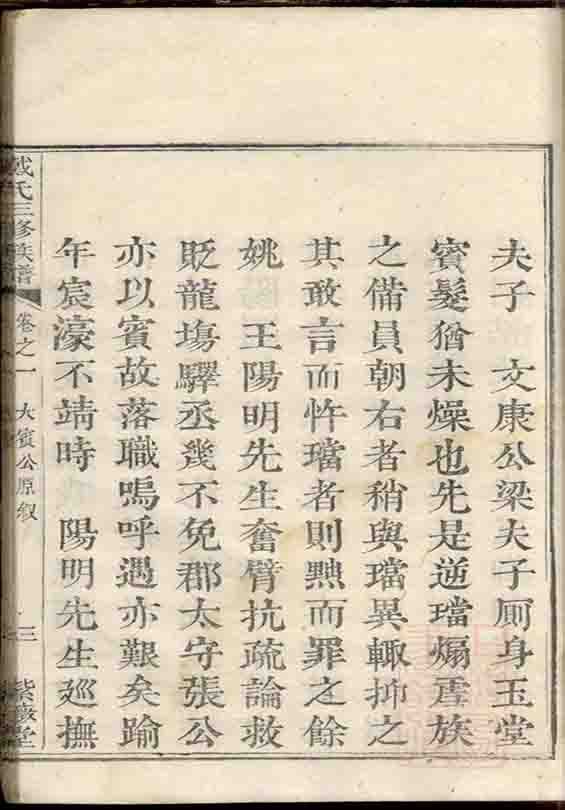 夫子　文康公梁夫子厠身玉堂
賓髮猶未燥也先是逆璫煽虐族
之備員朝右者稍與璫異輙抑之
其敢言而忤璫者則黜而罪之餘
姚　王陽明先生奮臂抗疏論救
貶龍塲驛丞幾不免郡太守張公
亦以賓故落職嗚呼遇亦艱矣踰
年宸濠不靖時　陽明先生廵撫
氏三修族譜　卷之一　大賓公原叙　三　紫　堂